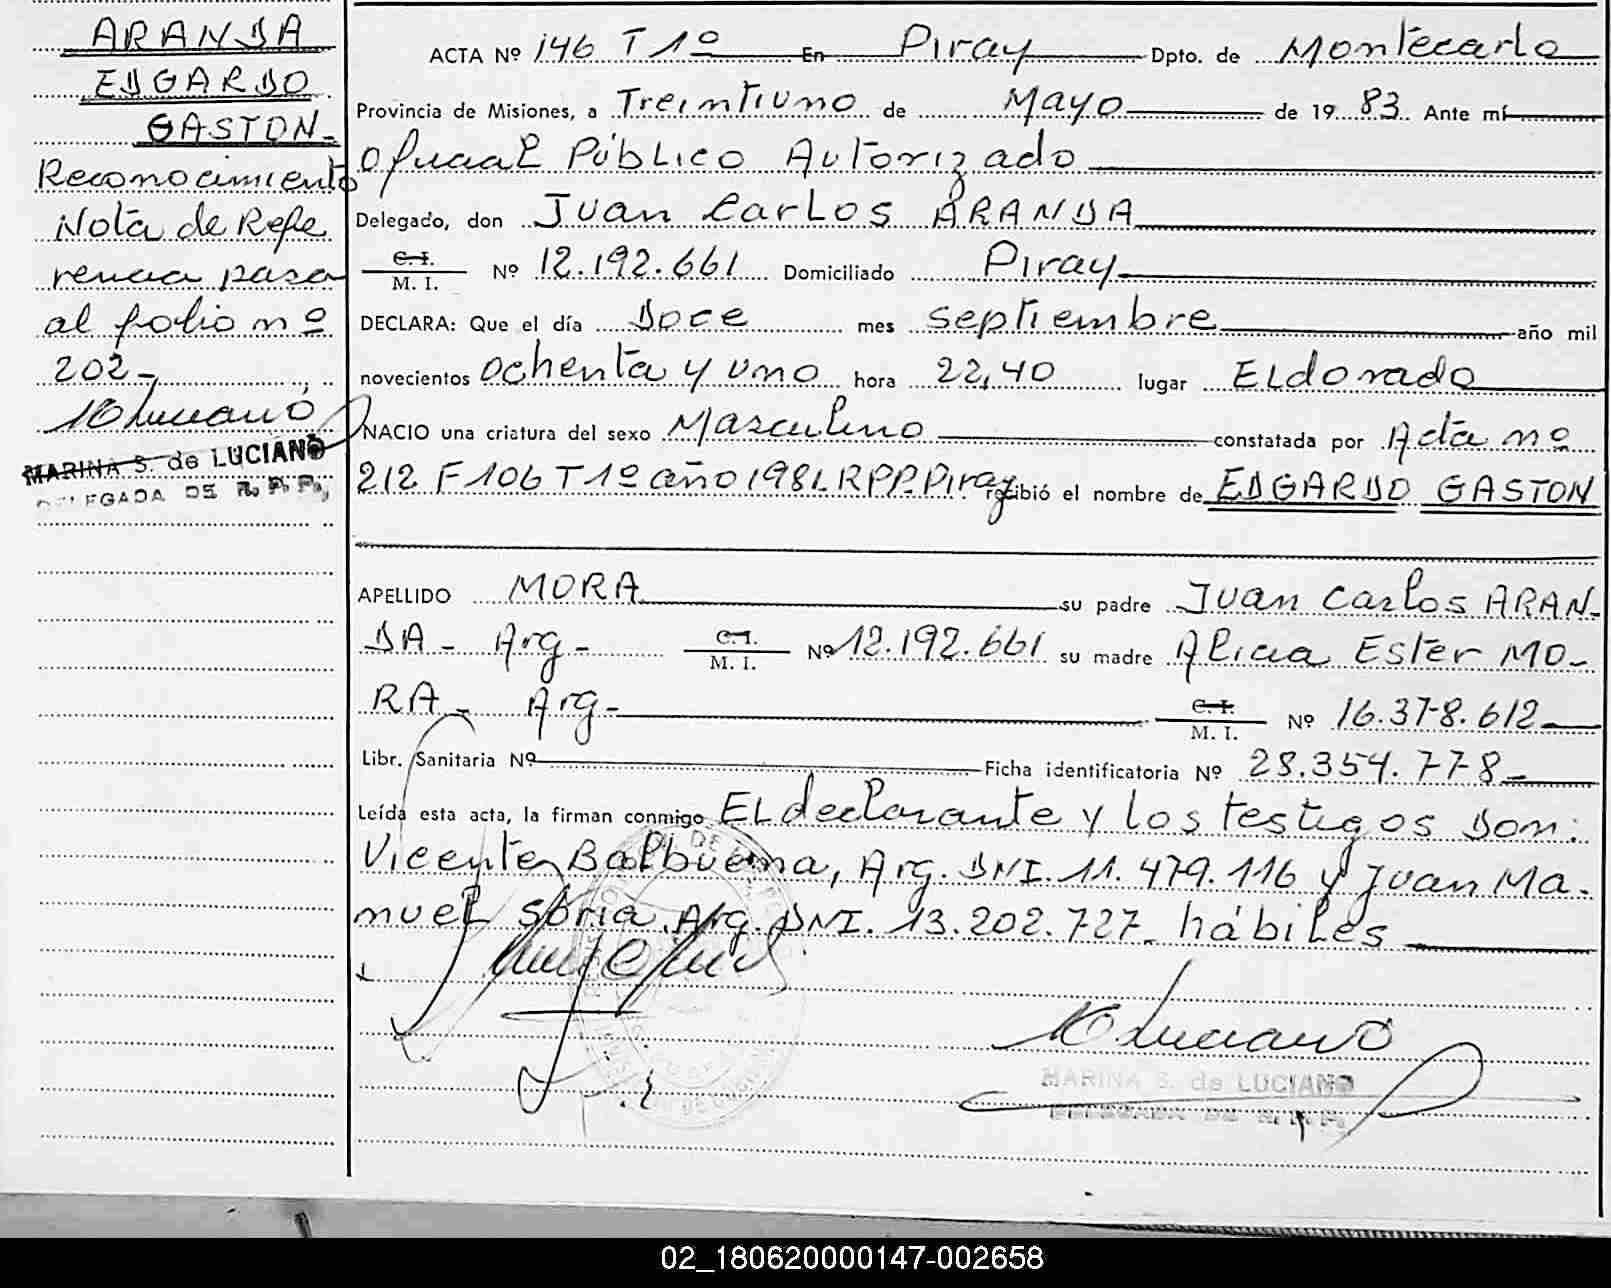 ARANDA
EDGARDO
GASTON-
Reconocimiento
Nota de Refe
rencia pasa
al folio nº
202-
MARINA S. de LUCIANO
DELEGADA DE R. P. P.,
ACTA Nº 146 T 1º En Piray Dpto. de Montecarlo
Provincia de Misiones, a Treintiuno de Mayo de 19 83 Ante mí
Oficial Público Autorizado
Delegado, don Juan Carlos ARANDA
C. I.
M. I. Nº 12.192.661 Domiciliado Piray
DECLARA: Que el día Doce mes septiembre año mil
novecientos ochenta y uno hora 22,40 lugar ELdorado
NACIO una criatura del sexo Masculino constatada por Acta nº
212 F 106 T 1º año 1981 RPP. Piray recibió el nombre de EDGARDO GASTON
APELLIDO MORA su padre Juan Carlos ARAN-
DA - Arg - C. I.
M. I. Nº 12.192.661 su madre Alicia Ester MO-
RA - Arg - C. I.
M. I. Nº 16.378.612
Libr. Sanitaria Nº Ficha identificatoria Nº 28.354.778-
Leída esta acta, la firman conmigo EL declarante y los testigos Don:
Vicente Balbuena, Arg. DNI. 11.479.116 y Juan Ma-
nuel Soria, Arg. DNI. 13.202.727 hábiles
MARINA S. de LUCIANO
DELEGADA DE R. P. P.
02_180620000147-002658